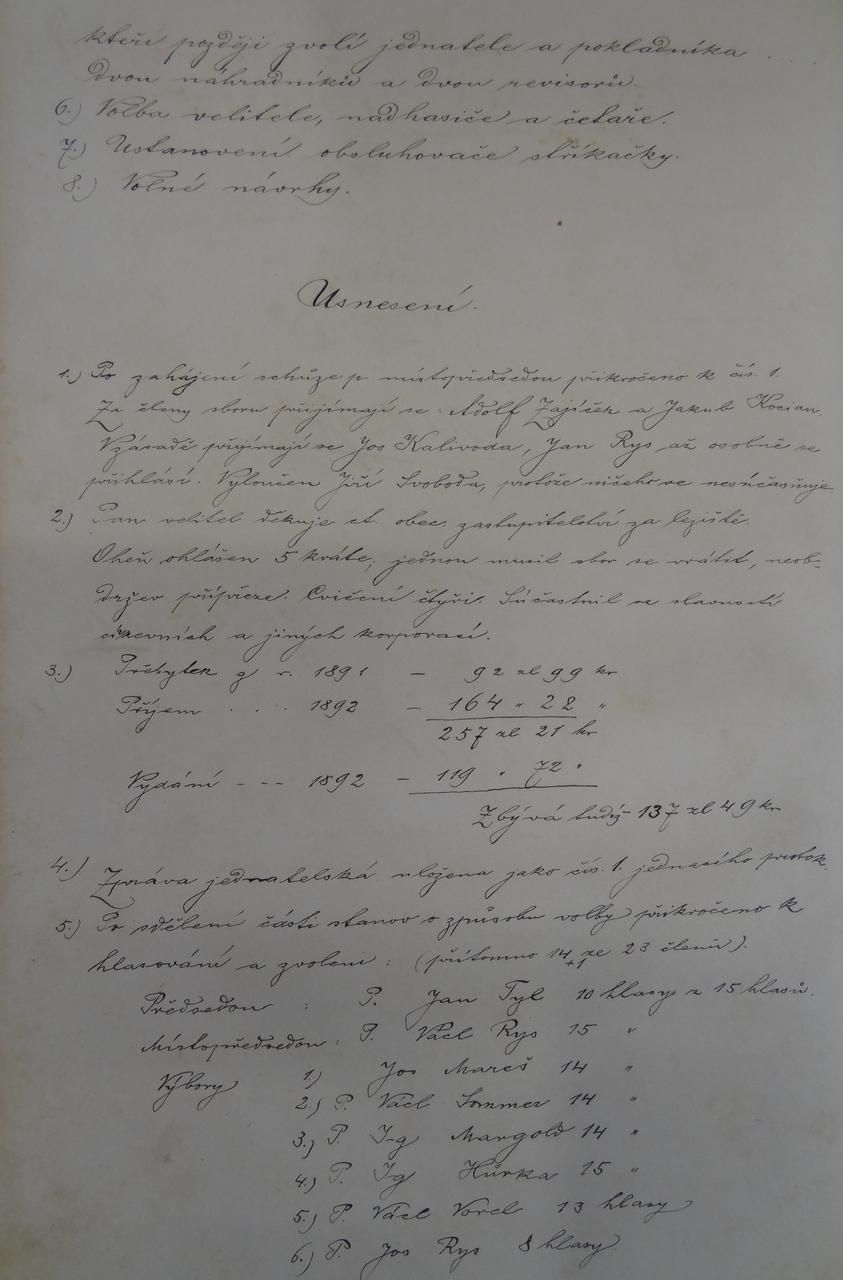 kteří později zvolí jednatele a pokladníka
dvou náhradníků a dvou revisorů.
6.) Volba velitele, nadhasiče a četaře.
7.) Ustanovení obsluhovače stříkačky.
8.) Volné návrhy.
Usnesení.
1.) Po zahájení schůze p. místopředsedou přikročeno k čís. 1.
Za členy sboru přijímají se: Adolf Zajíček a Jakub Kocian.
V zásadě přijímají se Jos Kalivoda, Jan Rys až osobně se
přihlásí. Vyloučen Jiří Svoboda, protože ničeho se nesúčasňuje.
2.) Pan velitel děkuje ct. obec. zastupitelství za leziště.
Oheň ohlášen 5 kráte, jednou musil sbor se vrátit, neob-
držev přípřeze. Cvičení čtyři. Súčastnil se slavností
církevních a jiných korporací.
3.) Přebytek z r. 1891 – 92 zl 99 kr
Příjem . . . 1892 – 164 " 22 "
257 zl 21 kr
Vydání - - - 1892 – 119 " 72 "
Zbývá tudíž 137 zl 49 kr
4.) Zpráva jednatelská uložena jako čís. 1. jednacího protok.
5.) Po sdělení části stanov o způsobu volby přikročeno k
hlasování a zvoleni: (přítomno 14 +1 ze 23 členů).
Předsedou : P. Jan Tyl 10 hlasy z 15 hlasů.
Místopředsedou: P. Václ Rys 15 "
Výbory 1) Jos Mareš 14 "
2.) P. Václ Sommer 14 "
3.) P. Ig Margold 14 "
4.) P. Ig Hůrka 15 "
5.) P. Václ Vorel 13 hlasy
6.) P. Jos Rys 8 hlasy.